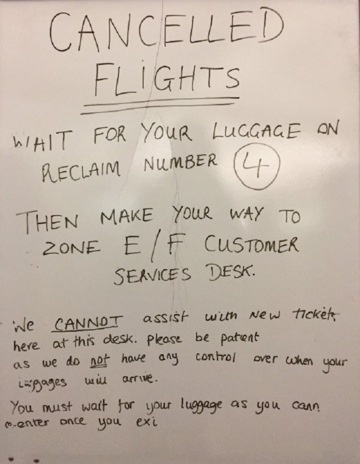 CANCELLED
FLIGHTS
WAIT FOR YOUR LUGGAGE ON
RECLAIM NUMBER 4
THEN MAKE YOUR WAY TO
ZONE E/F CUSTOMER
SERVICES DESK.
We CANNOT assist with new tickets
here at this desk. Please be patient
as we do not have any control over when your
luggages will arrive.
You must wait for your luggage as you cann
re-enter once you exi